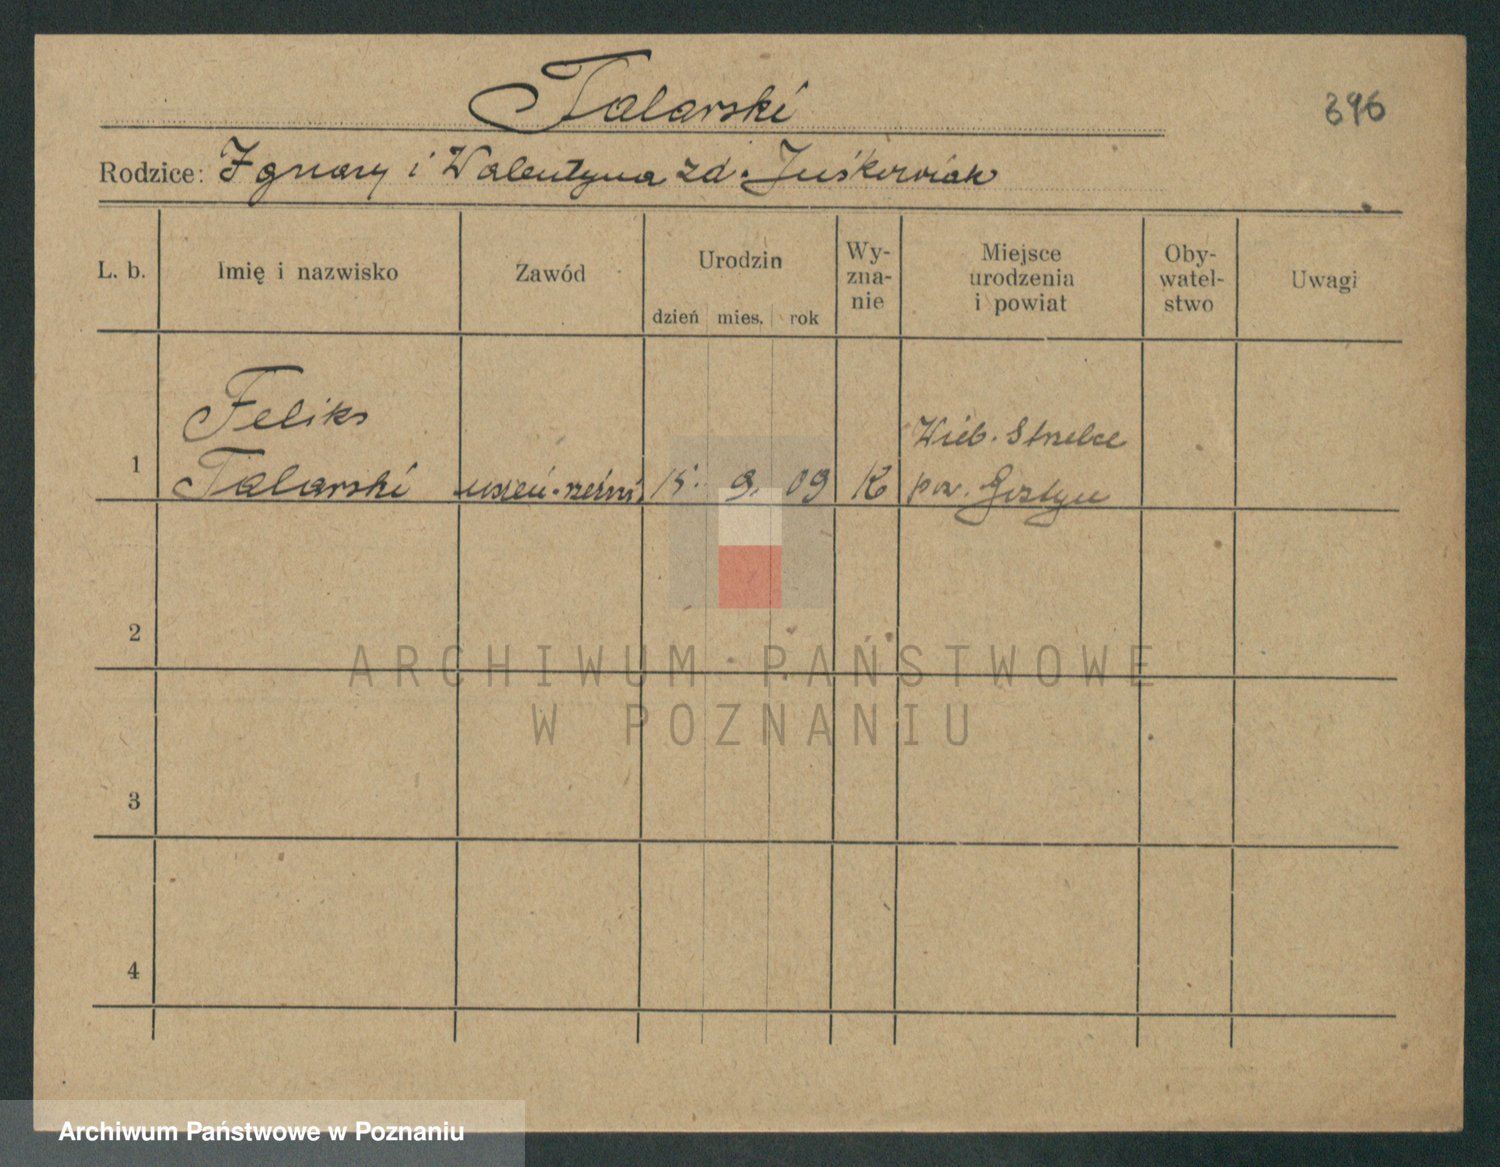 Talarski
396
Rodzice: Ignacy i Walentyna zd. Juśkowiak
L. b.
Imię i nazwisko
Zawód
Urodzin
dzień mies. rok
Wy-
zna-
nie
Miejsce
urodzenia
i powiat
Oby-
watel-
stwo
Uwagi
1
Feliks
Talarski
uczeń-rzeźni.
15. 9. 09
K
Wielk. Strzelce
pow. Gostyń
2
3
4
ARCHIWUM PAŃSTWOWE
W POZNANIU
Archiwum Państwowe w Poznaniu